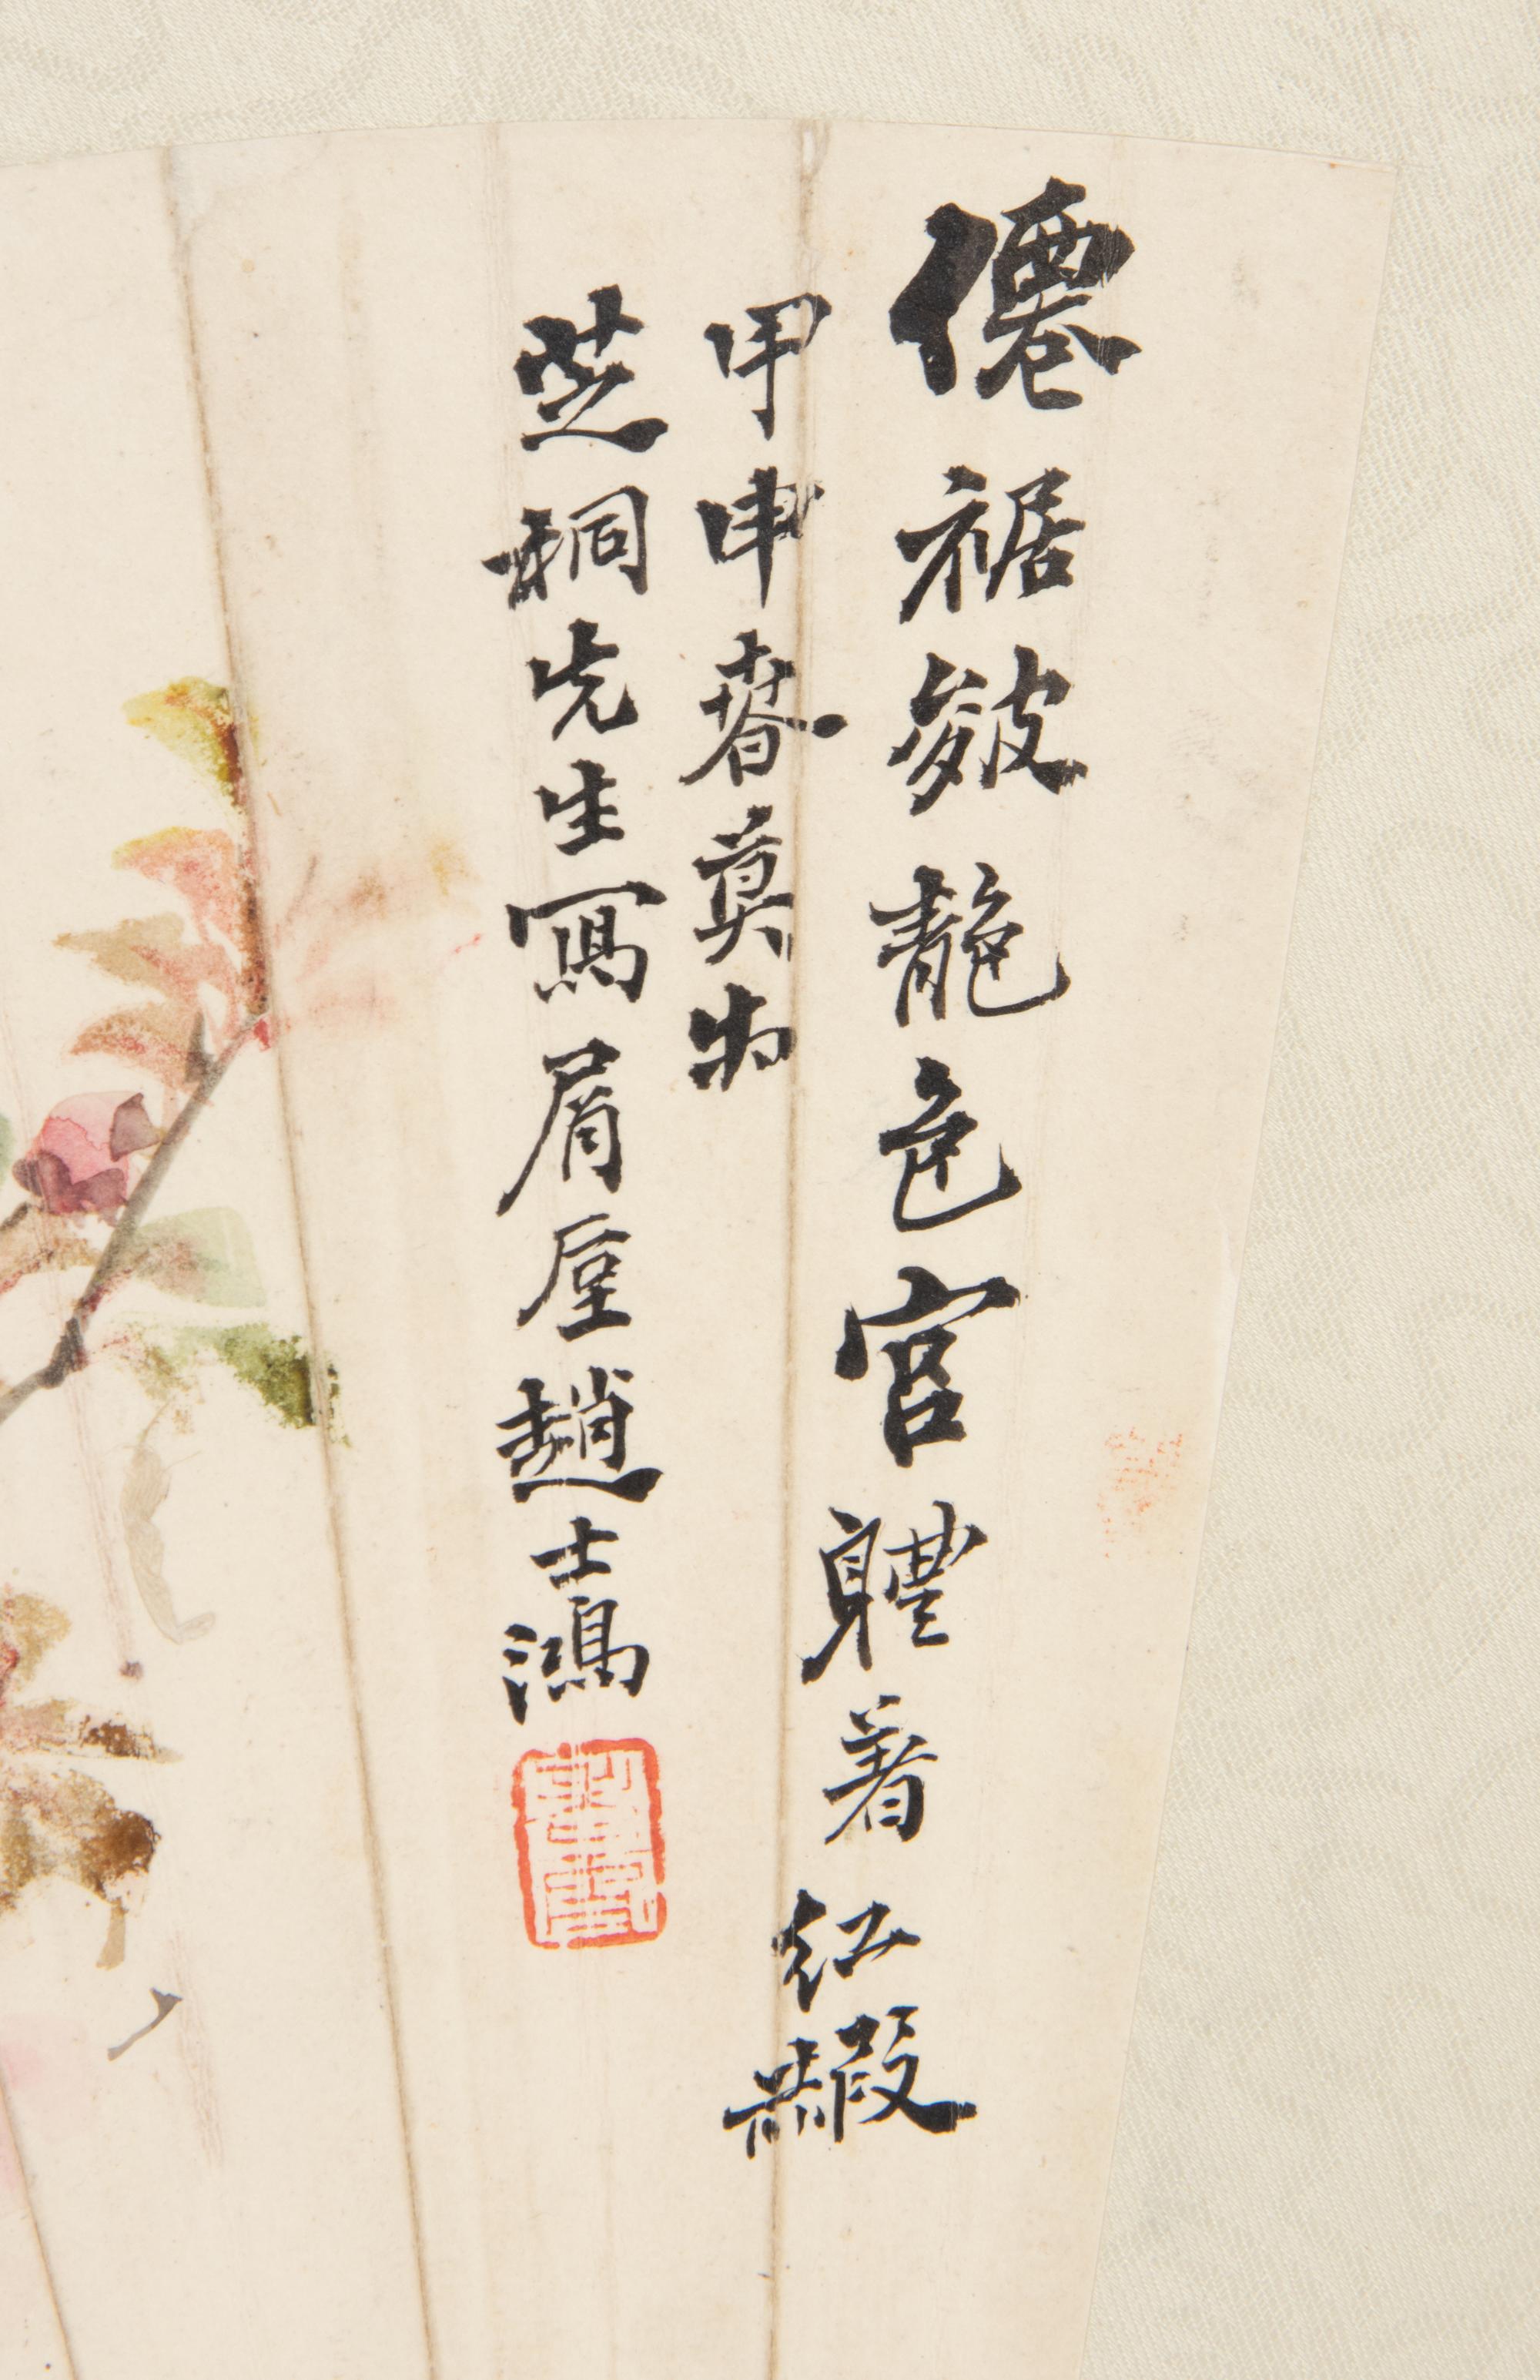 僊裾皺靘色宮體著紅赮
甲申春莫為
芝桐先生寫眉厓趙士鴻